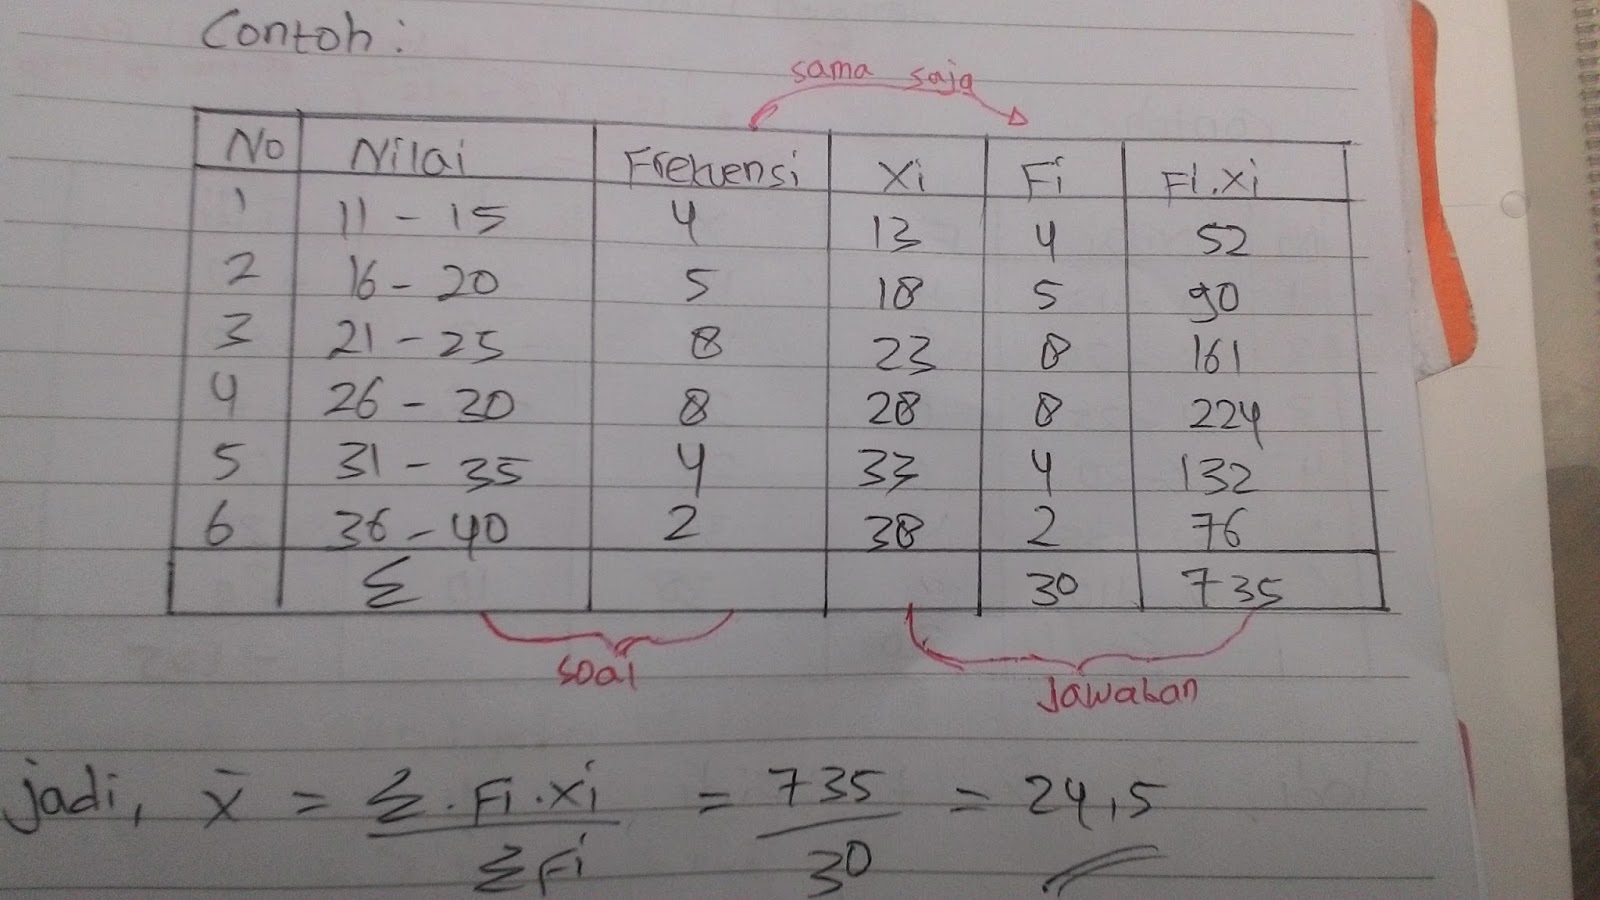 Contoh :
sama saja
No Nilai Frekuensi Xi Fi Fi.xi
1 11 - 15 4 13 4 52
2 16 - 20 5 18 5 90
3 21 - 25 8 23 8 161
4 26 - 30 8 28 8 224
5 31 - 35 4 33 4 132
6 36 - 40 2 38 2 76
Σ 30 735
soal jawaban
jadi, x̄ = Σ.Fi.xi = 735 = 24,5
ΣFi 30